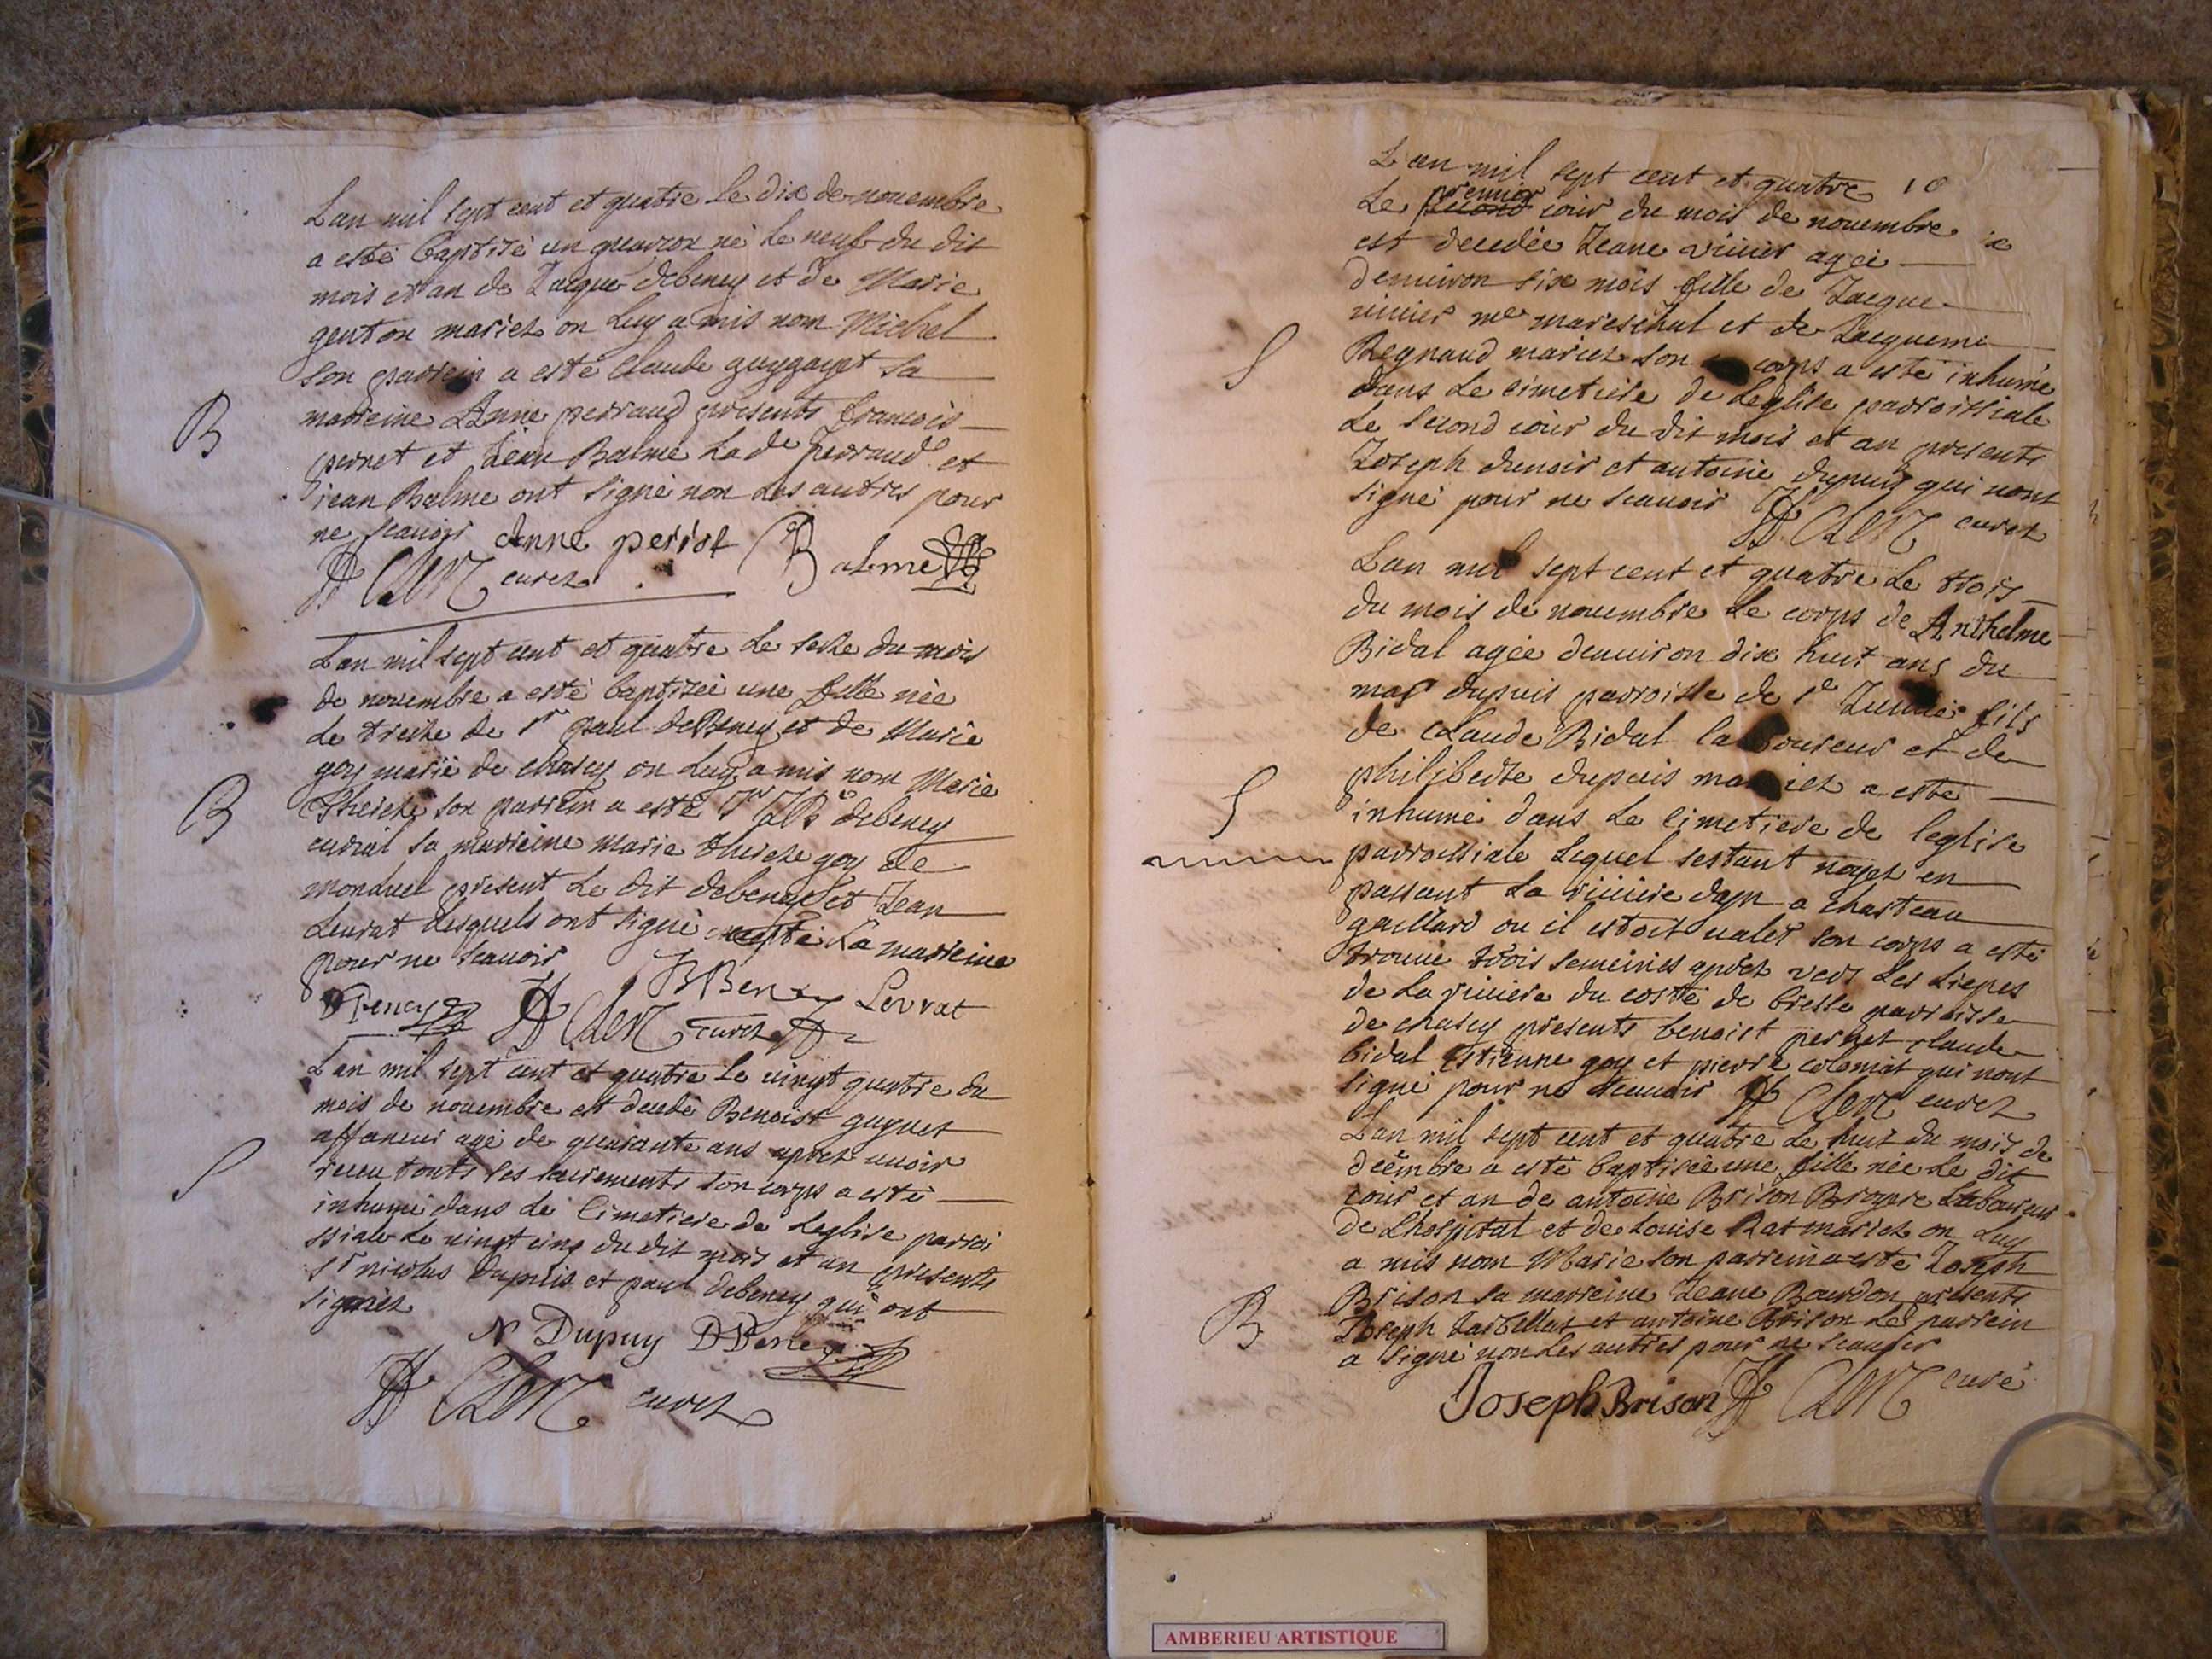 Lan mil sept cent et quatre le dix de nouembre
a esté baptisé un garcon né le neuf du dit
mois et an de Jacque debeney et de Marie
genton mariez on luy a mis nom Michel
son parrein a esté Claude guygayt sa
marreine Anne perraud presents francois
pernet et Jean Balme lade perraud et
jean Balme ont signé non les autres pour
ne scauoir Anne perrot Balme
Clerc curez
B
Lan mil sept cent et quatre le seize du mois
de nouembre a esté baptizée une fille née
le treize de sr paul deBeney et de Marie
goy marié de chasey on luy a mis nom Marie
Therese son parrein a esté sr debeney
curial sa marreine marie therese goy de
monluel present le dit debeney et Jean
Leurat lesquels ont signé excepté la marreine
pour ne scauoir Levrat
Clerc curez
B
Lan mil sept cent et quatre le vingt quatre du
mois de nouembre est decedé Benoist guynet
affaneur agé de quarante ans aprez auoir
receu touts les sacrements son corps a esté
inhumé dans le Cimetiere de Leglise parroi
ssiale le vingt cinq du dit mois et an presents
sr nicolas Dupuis et paul debeney qui ont
signez
N Dupuy
Clerc curez
S
Lan mil sept cent et quatre 10
Le second premier jour du mois de nouembre
est decedée Jeane viuier agée
denuiron six mois fille de Jacque
viuier me mareschal et de Jacqueme
Regnaud mariez son corps a esté inhumé
dans le cimetiere de Leglise parroissiale
le second jour du dit mois et an presents
Joseph dunoir et antoine dupuy qui nont
signé pour ne scauoir Clerc curez
S
Lan mil sept cent et quatre le trois
du mois de nouembre le corps de Anthelme
Bidal agée denuiron dix huit ans du
mas dupuis parroisse de fils
de claude Bidal laboureur et de
philiberte dupuis mariez a esté
inhumé dans le cimetiere de leglise
parroissiale lequel sestant noyez en
passant la riuiere dayn a chasteau
gaillard ou il estoit valet son corps a esté
trouué trois semeines aprez vers les liepes
de la riuiere du costé de bresse parroisse
de chasey presents benoist pernet claude
bidal Estienne goy et pierre colomat qui nont
signé pour ne scauoir Clerc curez
S
Lan mil sept cent et quatre le huit du mois de
decembre a esté baptisée une fille née le dit
jour et an de antoine Brison Brogere Laboureur
de Lhospital et de Louise Rat mariez on luy
a mis nom Marie son parrein a esté Joseph
Brison sa marreine Jeane Bourdon presents
Joseph et antoine Brison le parrein
a signé non les autres pour ne scauoir
Joseph Brison Clerc curé
B
AMBERIEU ARTISTIQUE